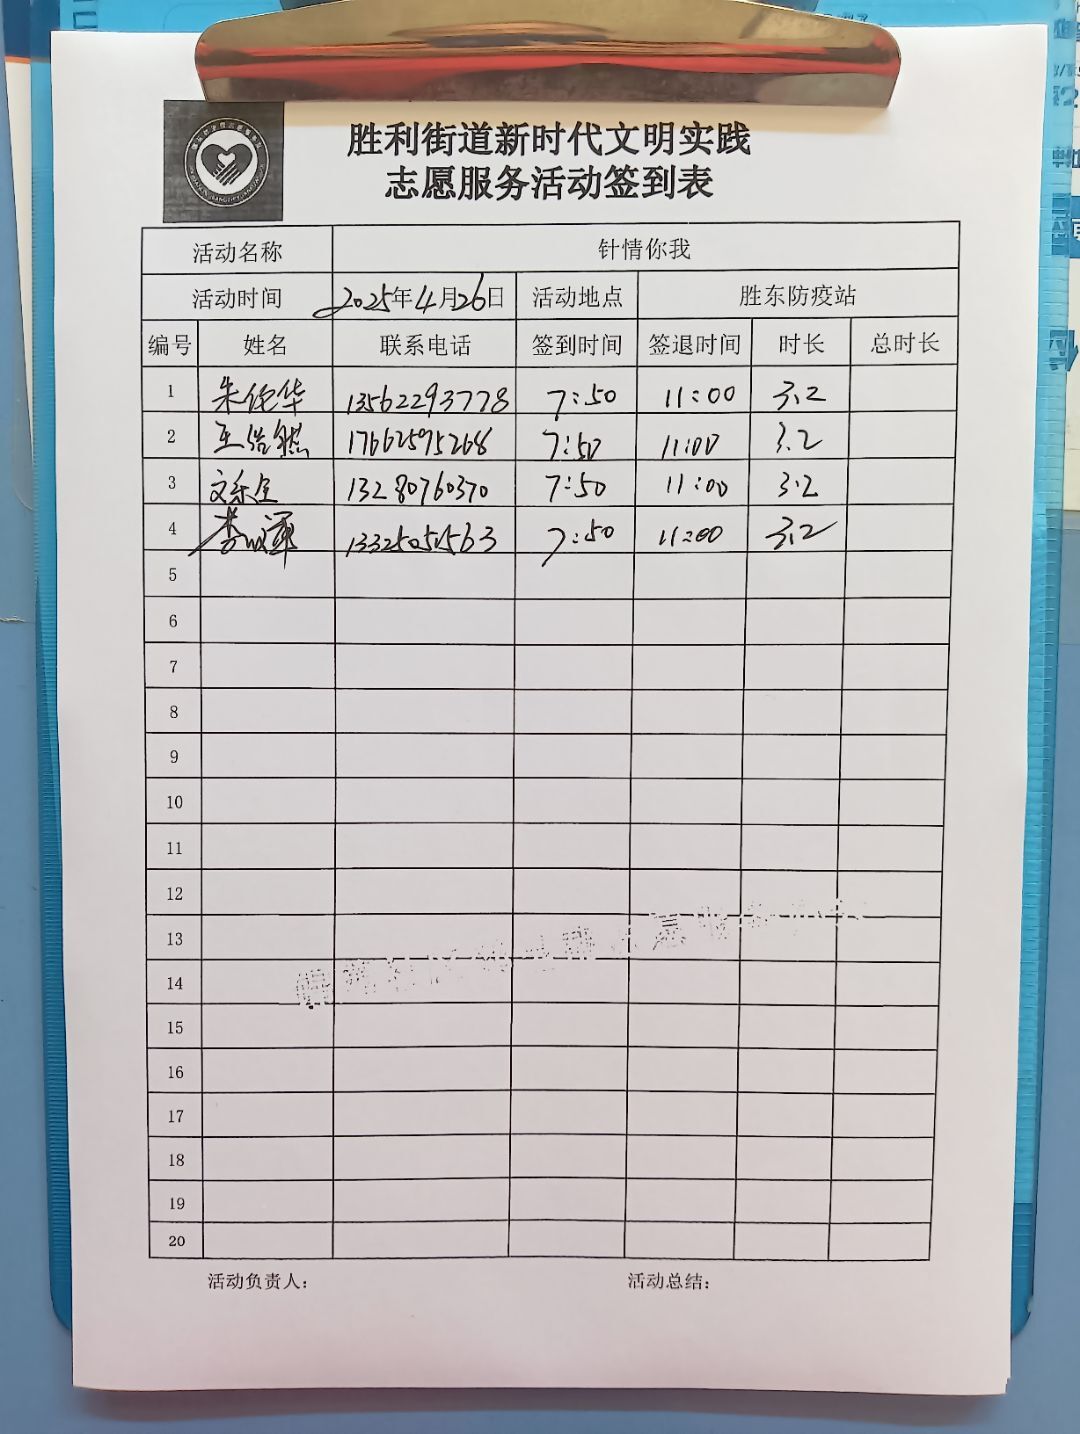 胜利街道新时代文明实践
志愿服务活动签到表
活动名称 针情你我
活动时间 2025年4月26日 活动地点 胜东防疫站
编号 姓名 联系电话 签到时间 签退时间 时长 总时长
1 朱化华 13562293778 7:50 11:00 3.2
2 王浩然 17662595268 7:50 11:00 3.2
3 文乐全 13280760370 7:50 11:00 3.2
4 李 军 13325051563 7:50 11:00 3.2
5
6
7
8
9
10
11
12
13
14
15
16
17
18
19
20
活动负责人： 活动总结：